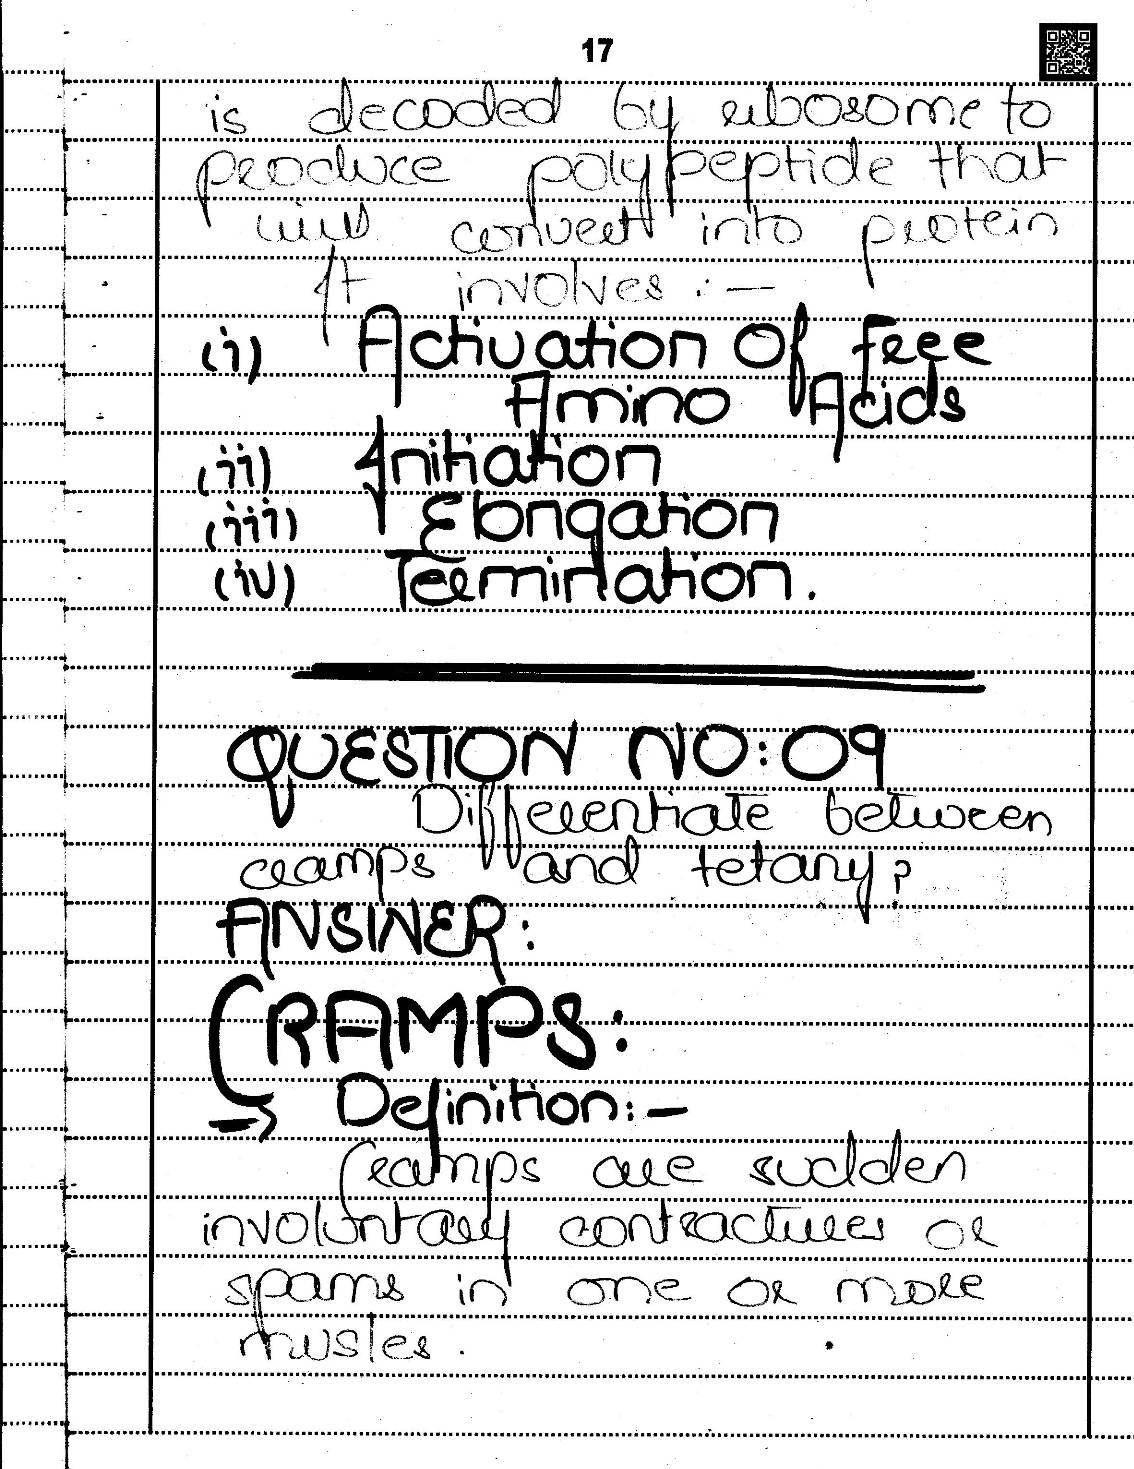 17
is decoded by ribosome to
produce polypeptide that
will convert into protein
It involves :-
(i) Activation Of Free
Amino Acids
(ii) Initiation
(iii) Elongation
(iv) Termination.
QUESTION NO: 09
Differentiate between
cramps and tetany?
ANSWER:
CRAMPS:
→ Definition:-
Cramps are sudden
involuntary contractures or
spams in one or more
musles.